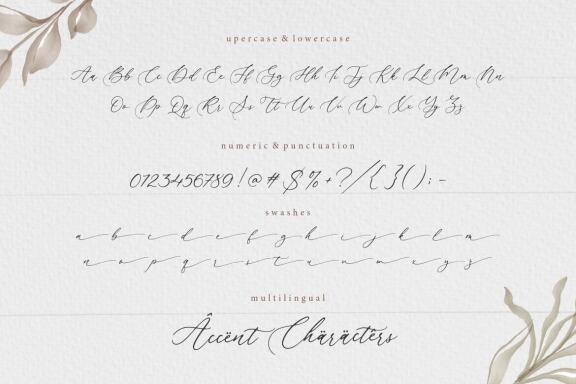 upercase & lowercase
Aa Bb Cc Dd Ee Ff Gg Hh Ii Jj Kk Ll Mm Nn
Oo Pp Qq Rr Ss Tt Uu Vv Ww Xx Yy Zz
numeric & punctuation
0123456789!@#$%+?/{}();-
swashes
a b c d e f g h i j k l m
n o p q r s t u v w x y z
multilingual
Âccënt Chäräctêrs